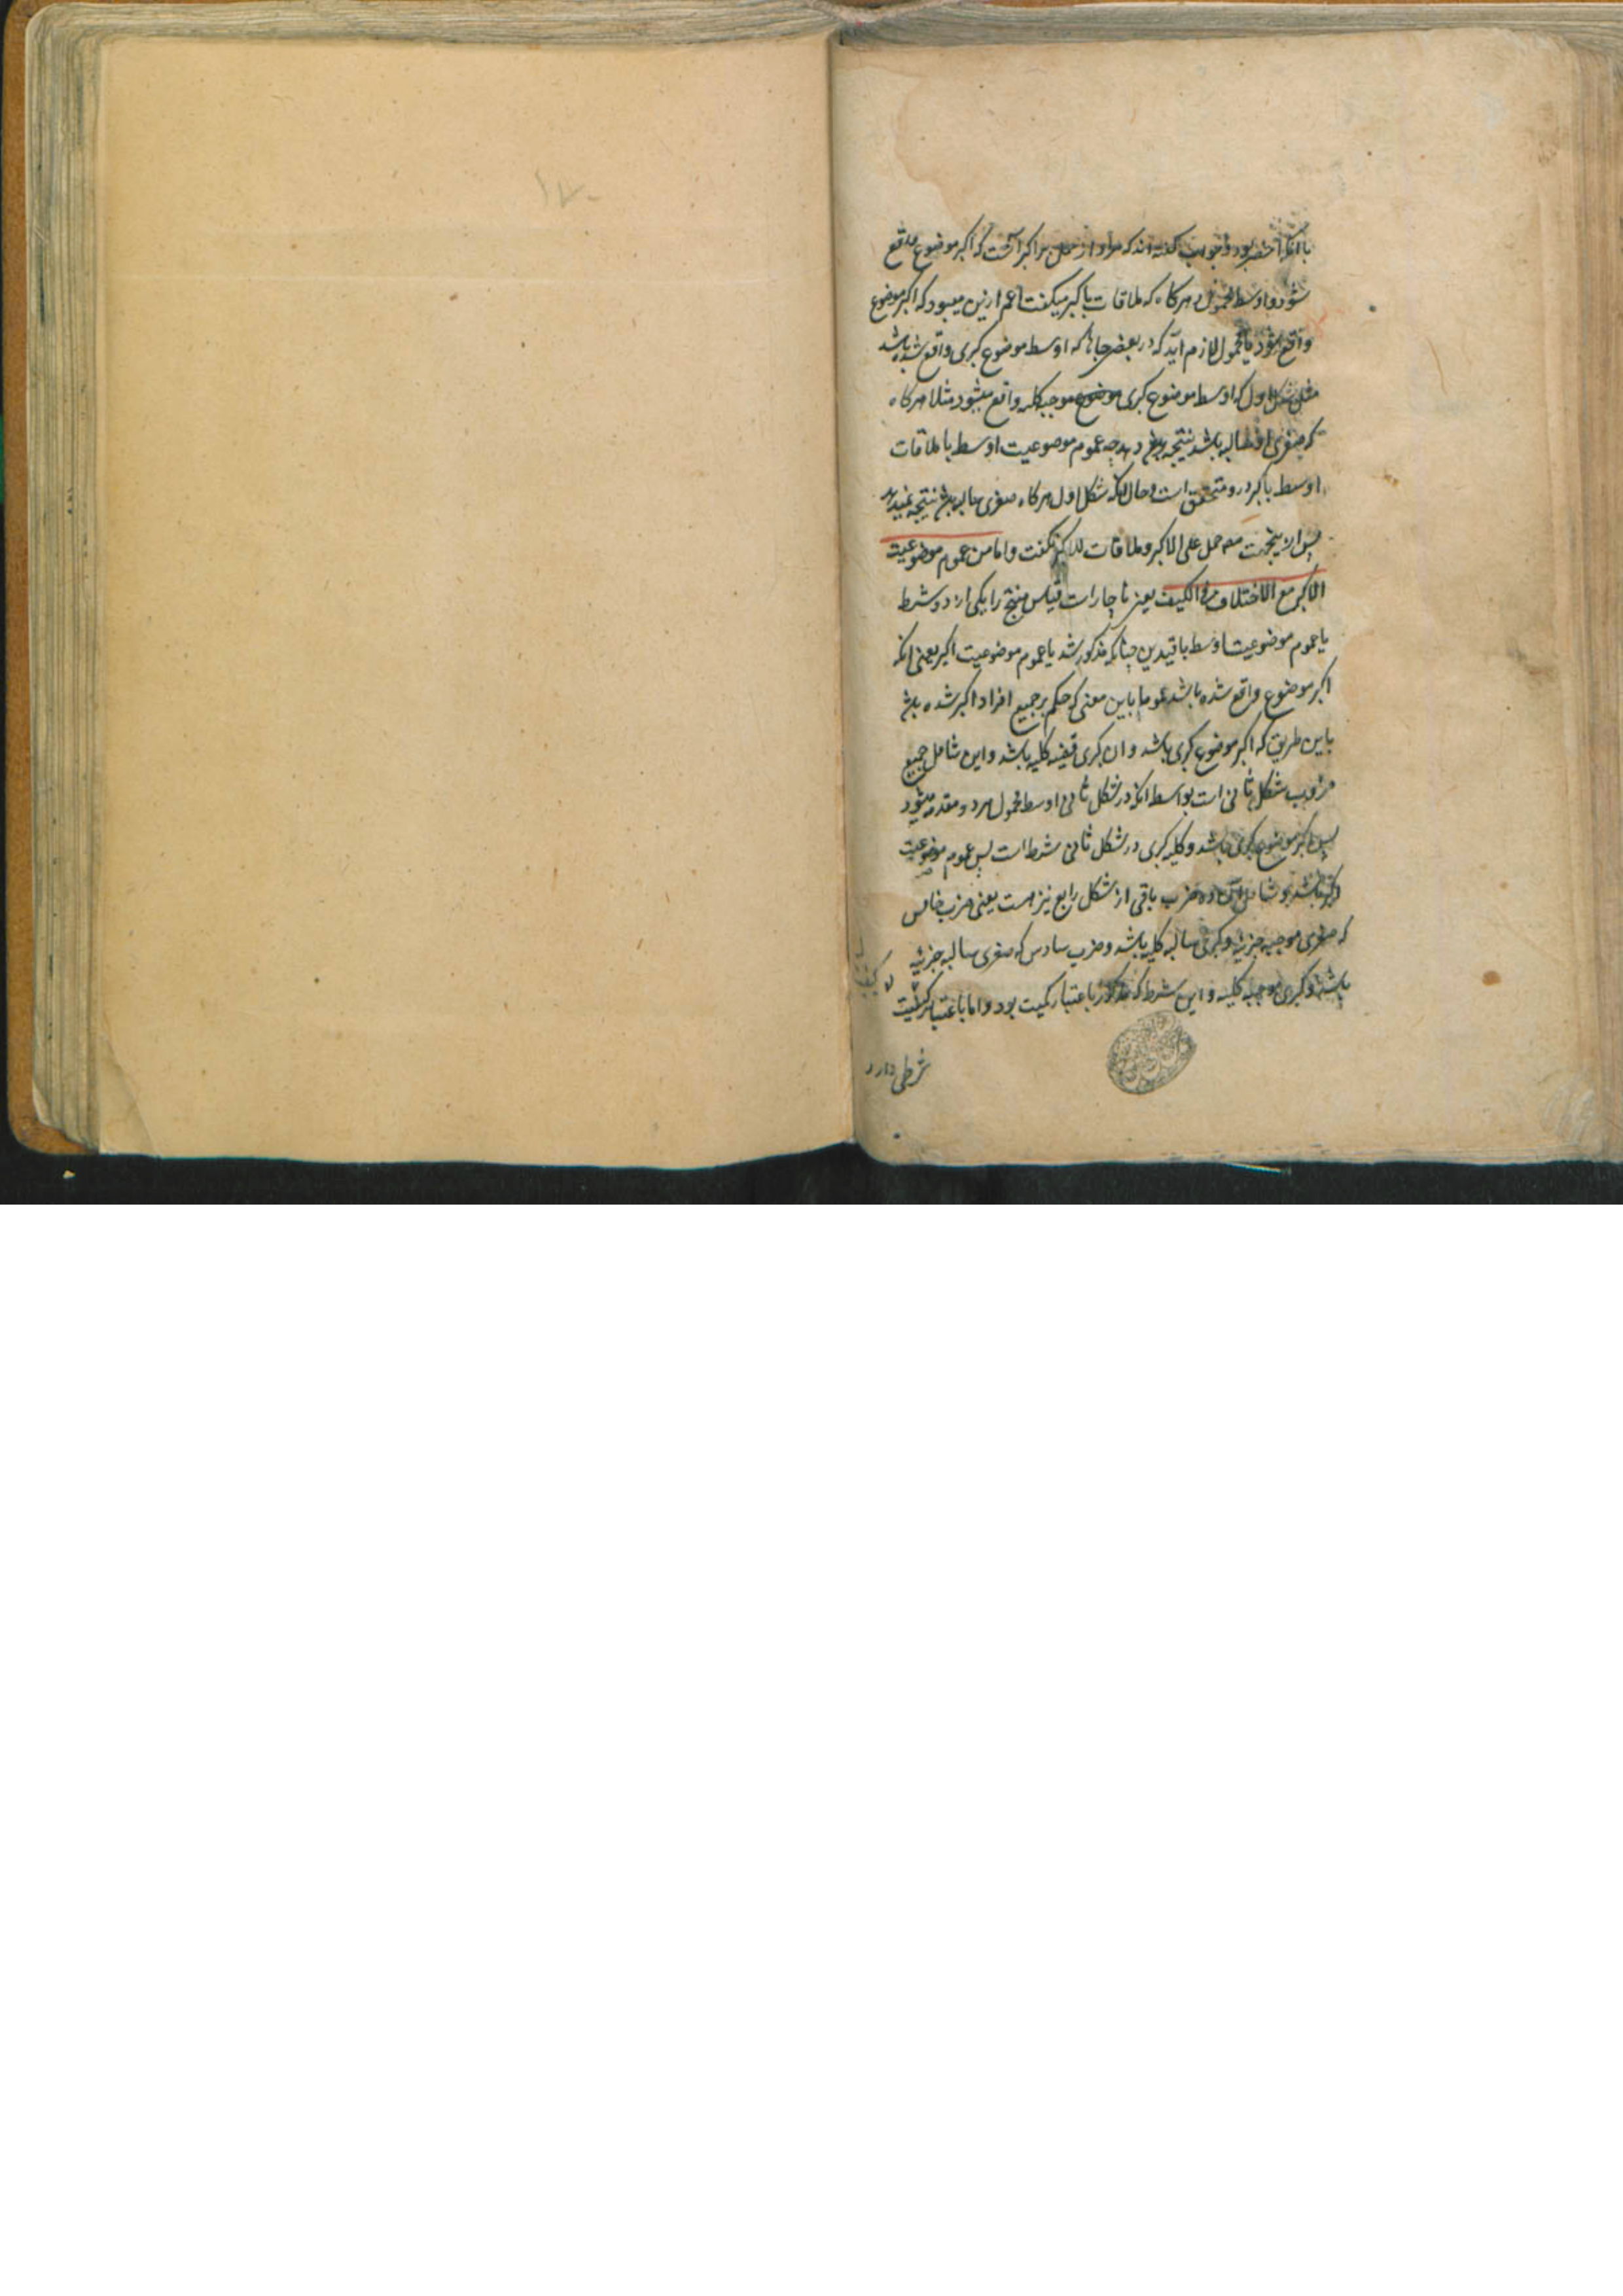 با آنکه اخصر بود و جواب گفته اند که مراد از حمل بر اکبر آنست که اکبر موضوع واقع
شود و اوسط محمول و هرگاه که ملاقات با کبر میکفت اعم ازین میبود که اکبر موضوع
واقع شود یا محمول لازم آید که در بعضی جاها که اوسط موضوع کبری واقع شده باشد
مثل شکل اول که اوسط موضوع کبری موضوع موجبه کلیه واقع میشود مثلا هرکاه
که صغری او سالبه باشد نتیجه بدهد چه عموم موضوعیت اوسط با ملاقات
اوسط باکبر درو متحقق است و حال آنکه شکل اول هرکاه صغری سالبه باشد نتیجه نمیدهد
پس ازینجهت مع حمل علی الاکبر و ملاقات للاکبر نکفت واما من عموم موضوعیت
الاکبر مع الاختلاف فی الکیف یعنی ناچار است قیاس منتج را یکی از دو شرط
یا عموم موضوعیت اوسط با قیدین چنانکه مذکور شد یا عموم موضوعیت اکبر یعنی انکه
اکبر موضوع واقع شده باشد عموما باین معنی که حکم بر جمیع افراد اکبر شده باشد
باین طریق که اکبر موضوع کبری باشد و ان کبری قضیه کلیه باشد واین شامل جمیع
ضروب شکل ثانی است بواسطه انکه در شکل ثانی اوسط محمول هر دو مقدمه میشود
پس اکبر موضوع کبری باشد و کلیه کبری در شکل ثانی شرط است پس عموم موضوعیت
اکبر باشد و شامل این دو ضرب باقی از شکل رابع نیز هست یعنی ضرب خامس
که صغری موجبه جزئیه و کبری سالبه کلیه باشد و ضرب سادس که صغری سالبه جزئیه
باشد و کبری موجبه کلیه و این شرط که مذکور باعتبار کمیت بود و اما باعتبار کیفیت
شرطی دارد
۱۷۰